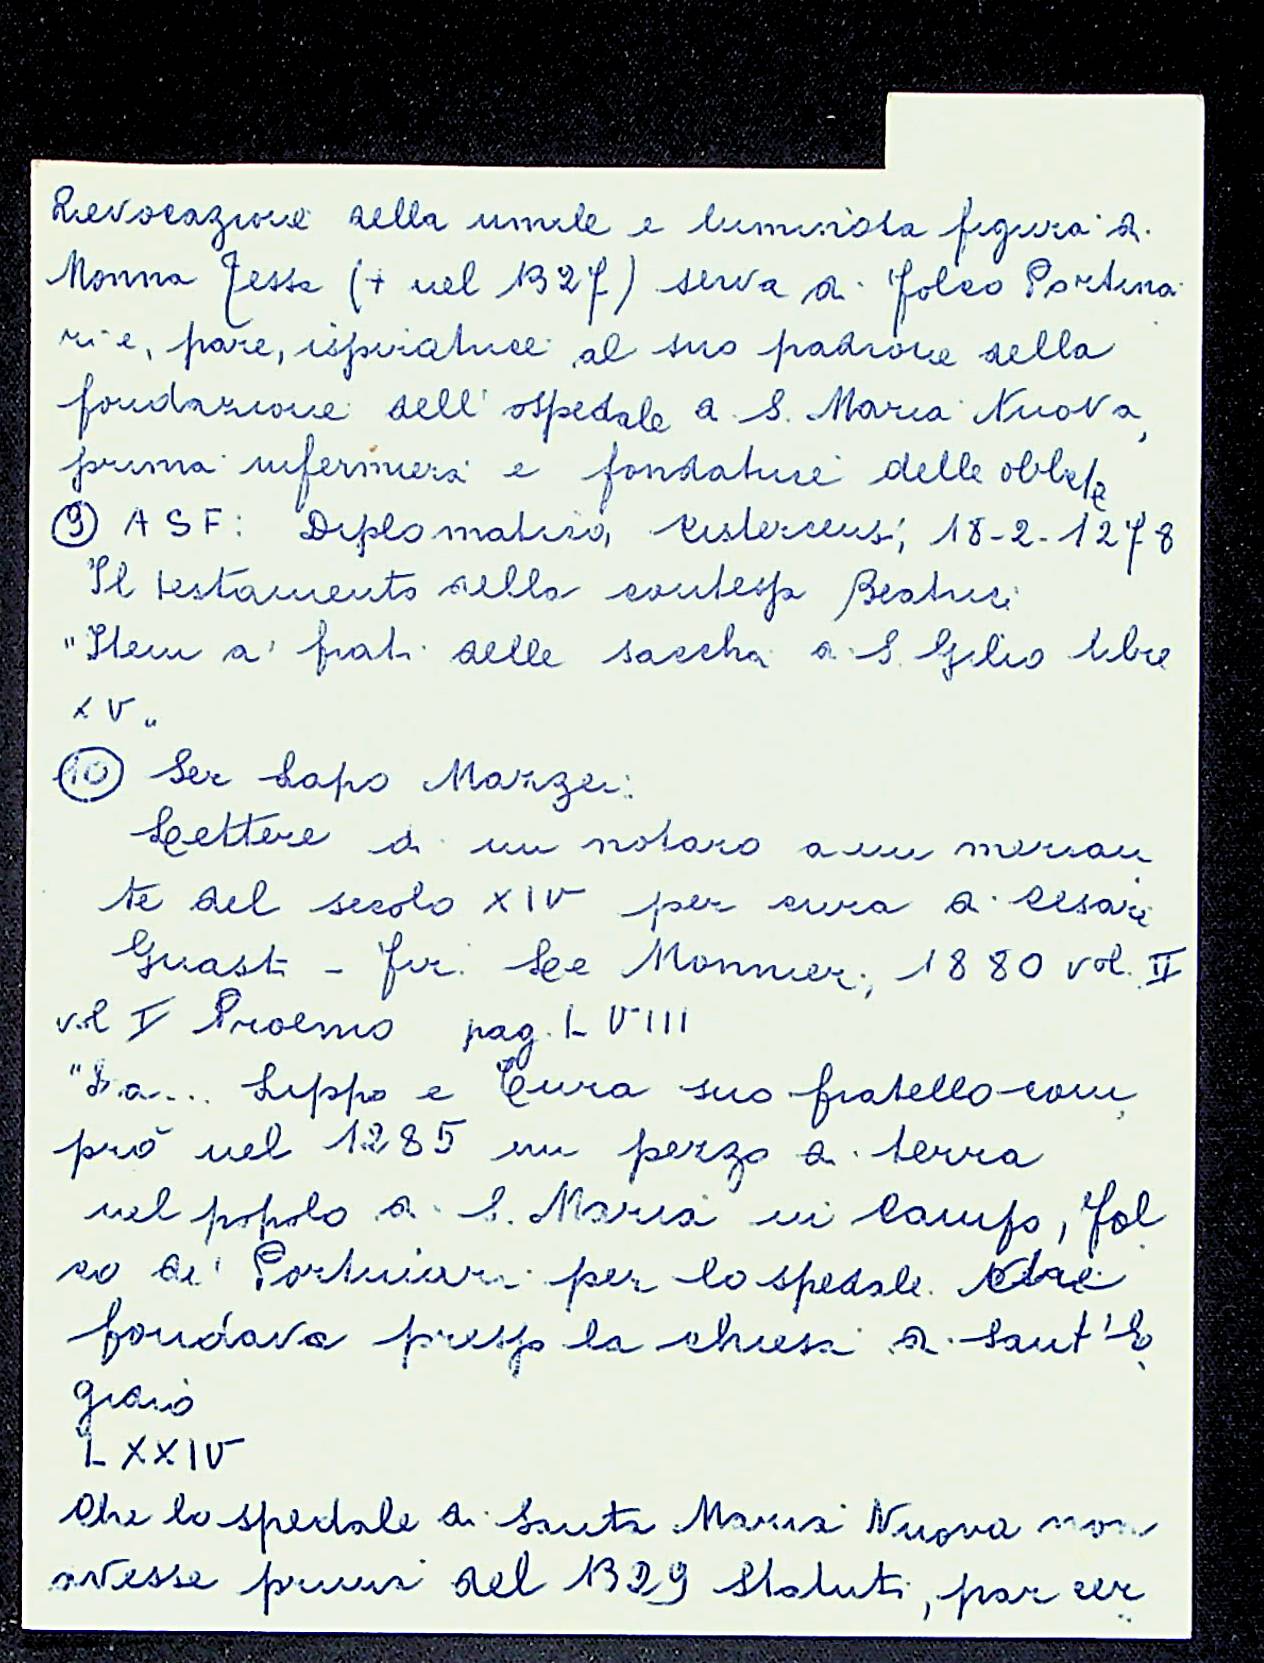 Rievocazione della umile e luminosa figura di
Monna Tessa (+ nel 1327) serva di Folco Portina
ri e, pare, ispiratrice al suo padrone della
fondazione dell'ospedale di S. Maria Nuova,
prima infermiera e fondatrice delle oblate
9 ASF: Diplomatico, Cistercensi, 18-2-1278
Il testamento della contessa Beatrice
"Item a' frati delle saccha di S. Gilio libre
XV"
10 Ser Lapo Mazzei:
Lettere di un notaro a un mercan
te del secolo XIV per cura di Cesare
Guasti - Fir. Le Monnier, 1880 vol. II
vol I Proemio pag. LVIII
"Da... Lippo e Cura suo fratello com
prò nel 1285 un pezzo di terra
nel popolo di S. Maria in Campo, Fol
co de' Portinari per lo spedale che
fondava presso la chiesa di Sant'E
gidio
LXXIV
Che lo spedale di Santa Maria Nuova non
avesse prima del 1329 Statuti, par cer